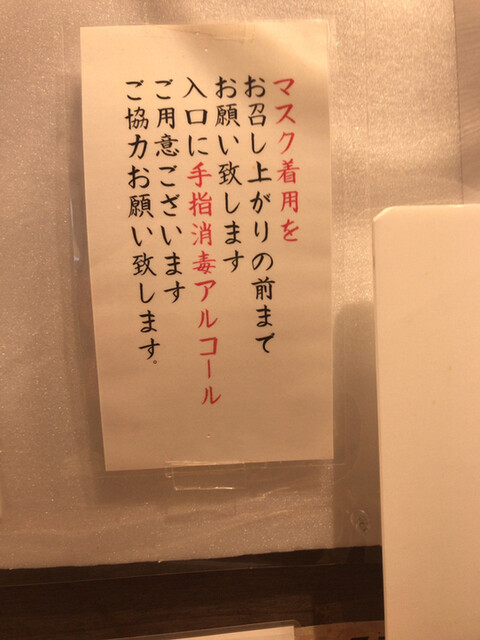 マスク着用を
お召し上がりの前まで
お願い致します
入口に手指消毒アルコール
ご用意ございます
ご協力お願い致します。